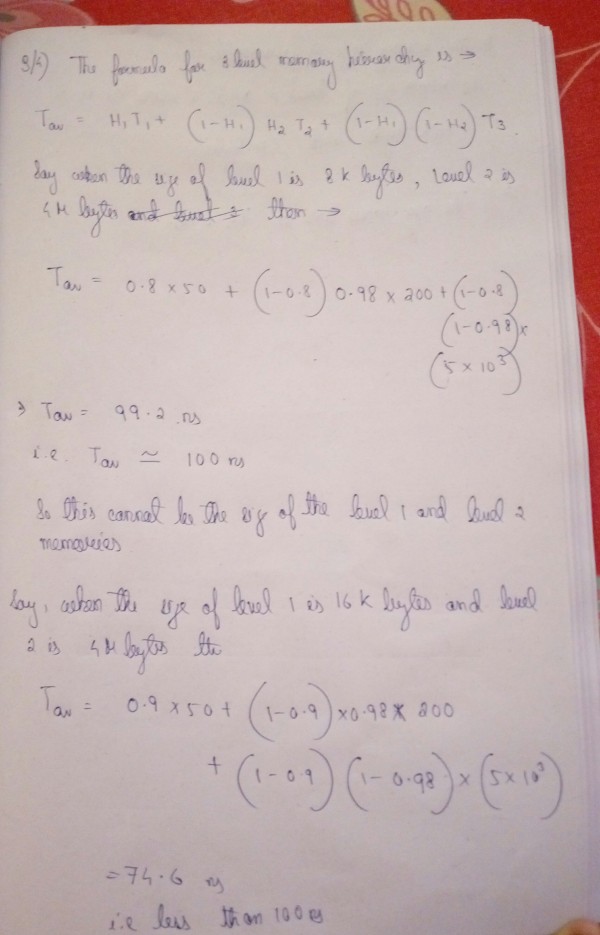 3/4) The formula for 3 level memory hierarchy is →
Tav = H₁T₁ + (1-H₁) H₂ T₂ + (1-H₁) (1-H₂) T₃.
Say when the size of level 1 is 8 k bytes, Level 2 is
4M bytes and level = then →
Tav = 0.8 × 50 + (1-0.8) 0.98 × 200 + (1-0.8)
(1-0.98) ×
(5 × 10³)
⇒ Tav = 99.2 ns
i.e. Tav ≃ 100 ns
So this cannot be the size of the level 1 and level 2
memories
Say, when the size of level 1 is 16 k bytes and level
2 is 4M bytes
Tav = 0.9 × 50 + (1-0.9) × 0.98 × 200
+ (1-0.9) (1-0.98) × (5 × 10³)
= 74.6 ns
i.e less than 100 ns